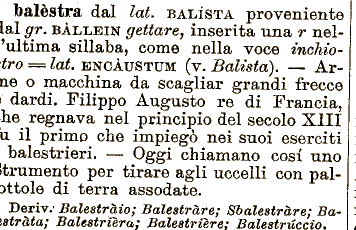 balèstra dal lat. BALÍSTA proveniente
dal gr. BÀLLEIN gettare, inserita una r nel-
l'ultima sillaba, come nella voce inchio-
tro = lat. ENCÀUSTUM (v. Balista). — Ar-
me o macchina da scagliar grandi frecce
o dardi. Filippo Augusto re di Francia,
che regnava nel principio del secolo XIII
fu il primo che impiegò nei suoi eserciti
i balestrieri. — Oggi chiamano cosí uno
strumento per tirare agli uccelli con pal-
ottole di terra assodate.
Deriv. Balestràio; Balestràre; Sbalestràre; Ba-
estràta; Balestrièra; Balestrière; Balestrúccio.